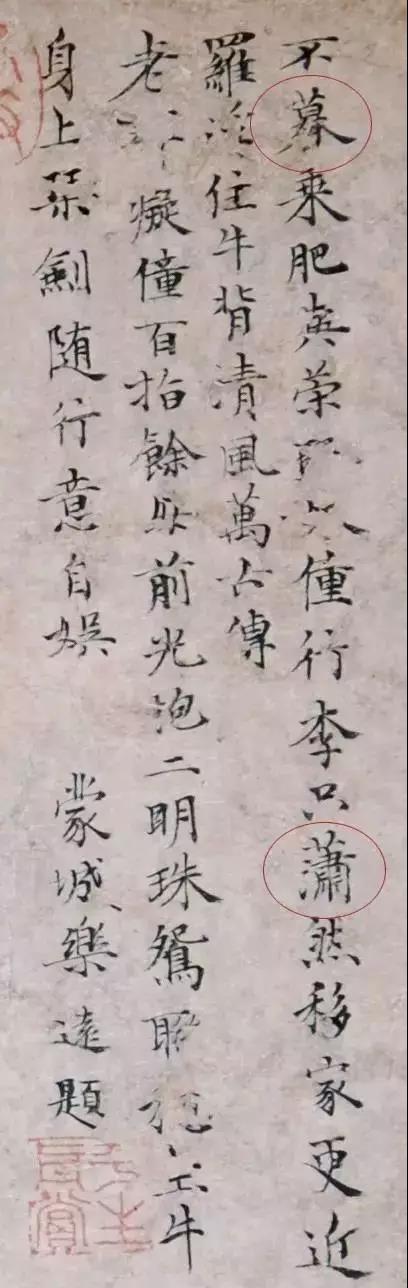 不慕乘肥與榮 僮行李只蕭然移家更近
羅 住牛背清風萬古傳
老 癡僮百指餘 前光泡二明珠鴛 穩 牛
身上琹劍随行意自娛 蒙城樂遠題